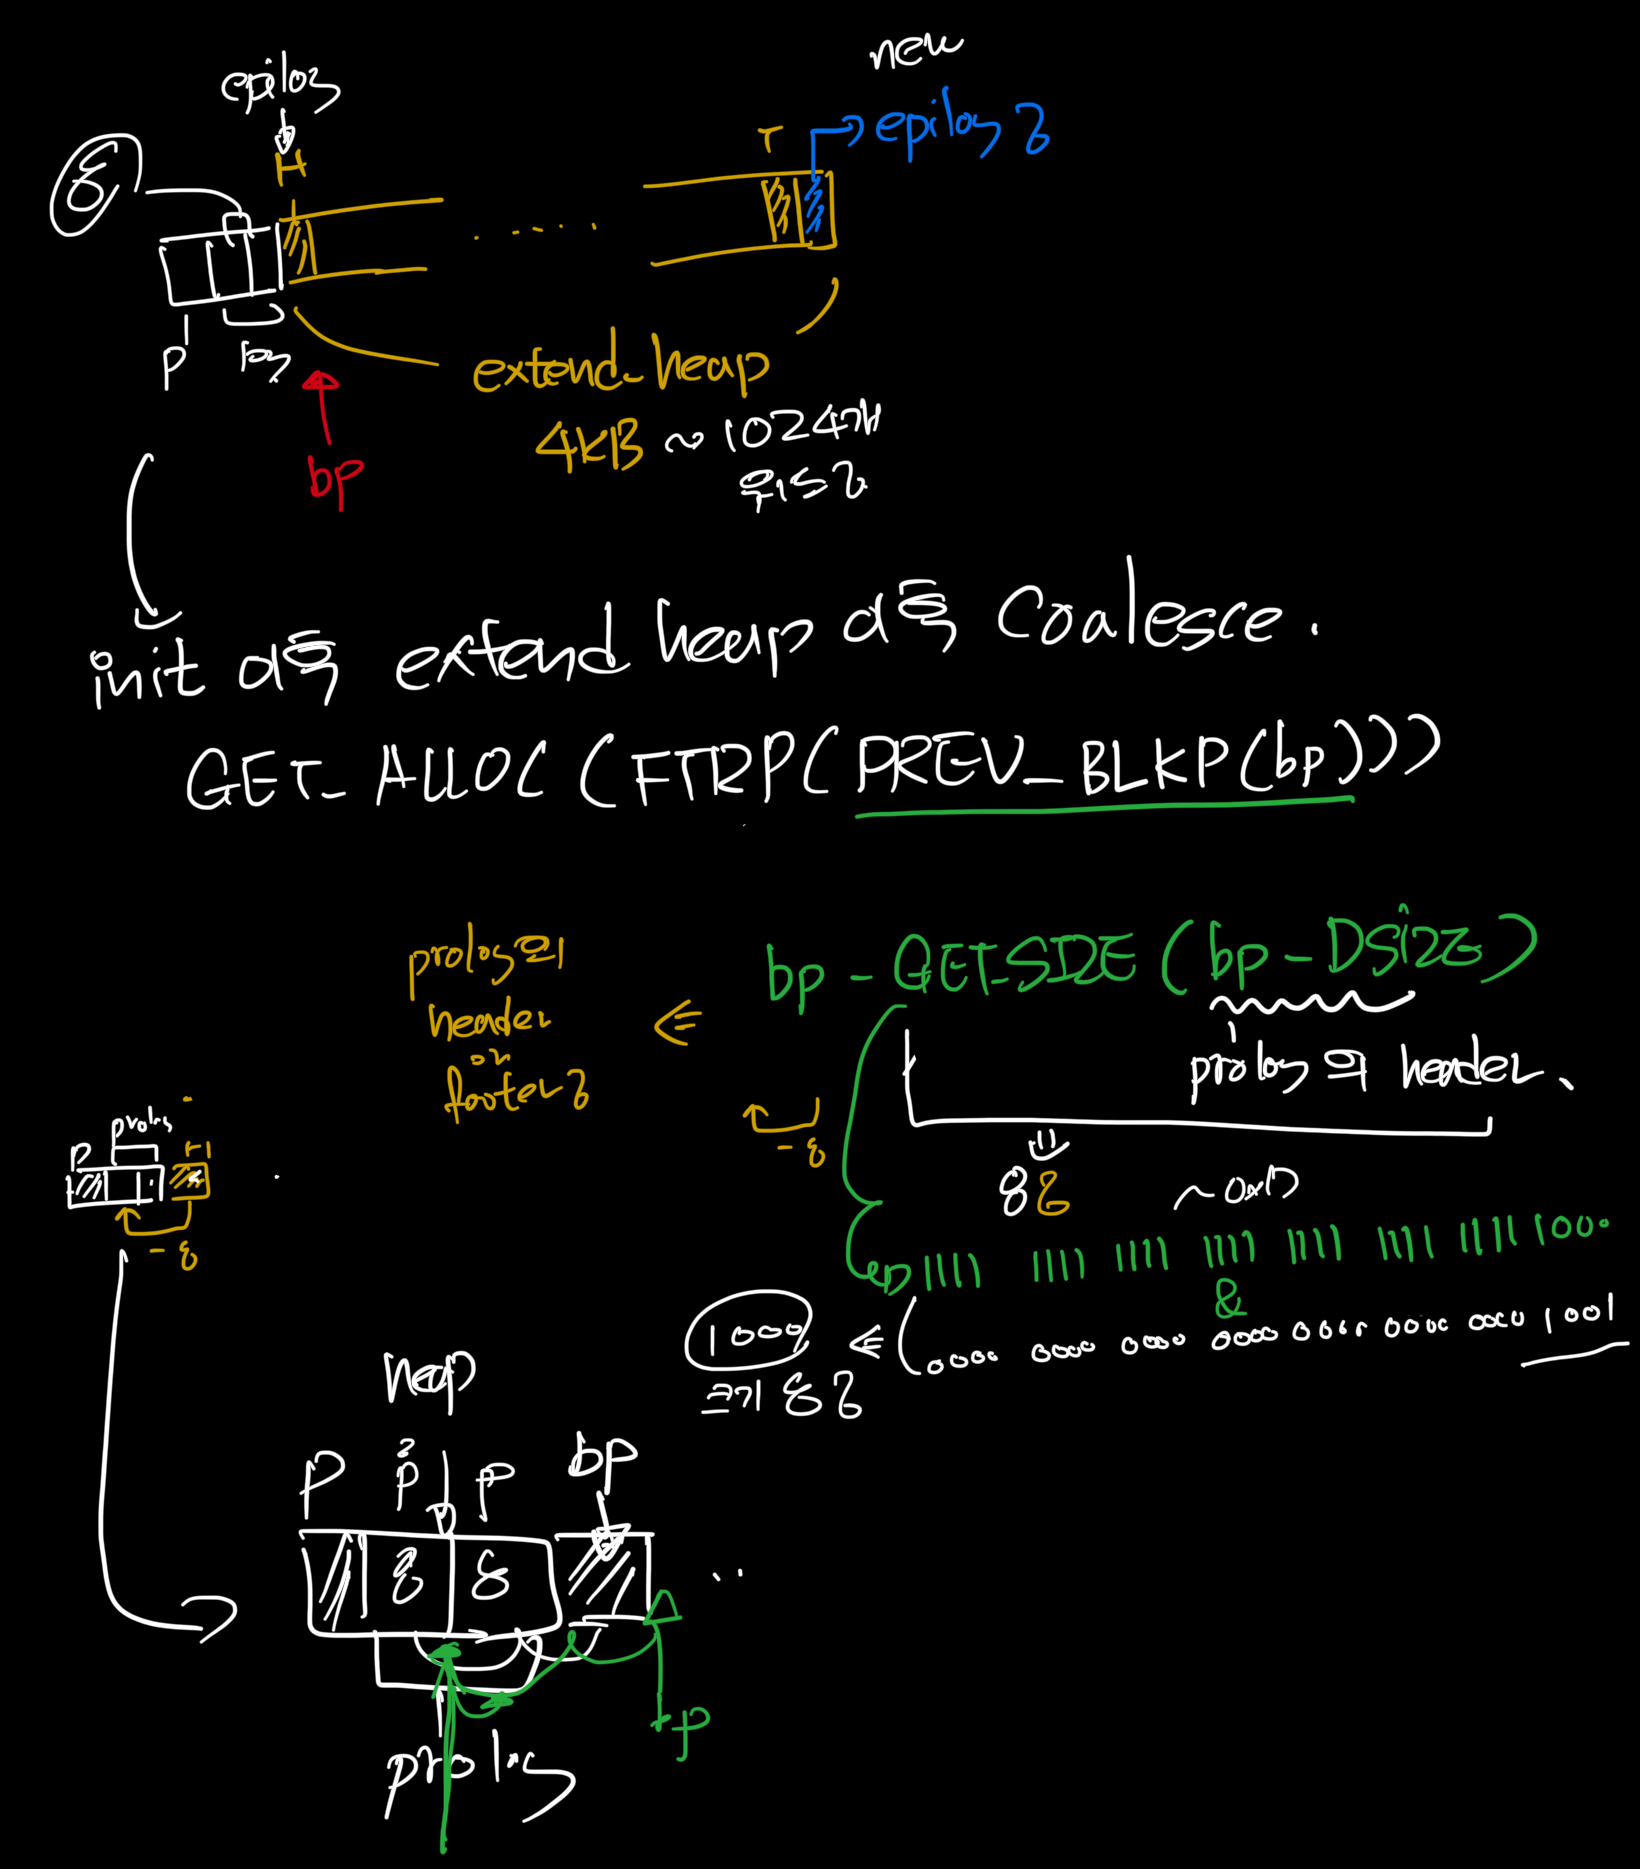 new
epilog
epilog
8
H
T
P
log
extend_heap
4KB ~ 1024개
워드
bp
init 이후 extend heap 이후 Coalesce.
GET_ALLOC (FTRP(PREV_BLKP(bp)))
bp - GET_SIZE (bp - Dsize)
prolog의 header
prolog의
header
or
footer
- 8
8
~ 0x7
prolog
P
H
- 8
1111 1111 1111 1111 1111 1111 1111 1000
&
0000 0000 0000 0000 0000 0000 0000 1001
1000
크기 8
heap
P P P bp
8 8
..
bp
prolog